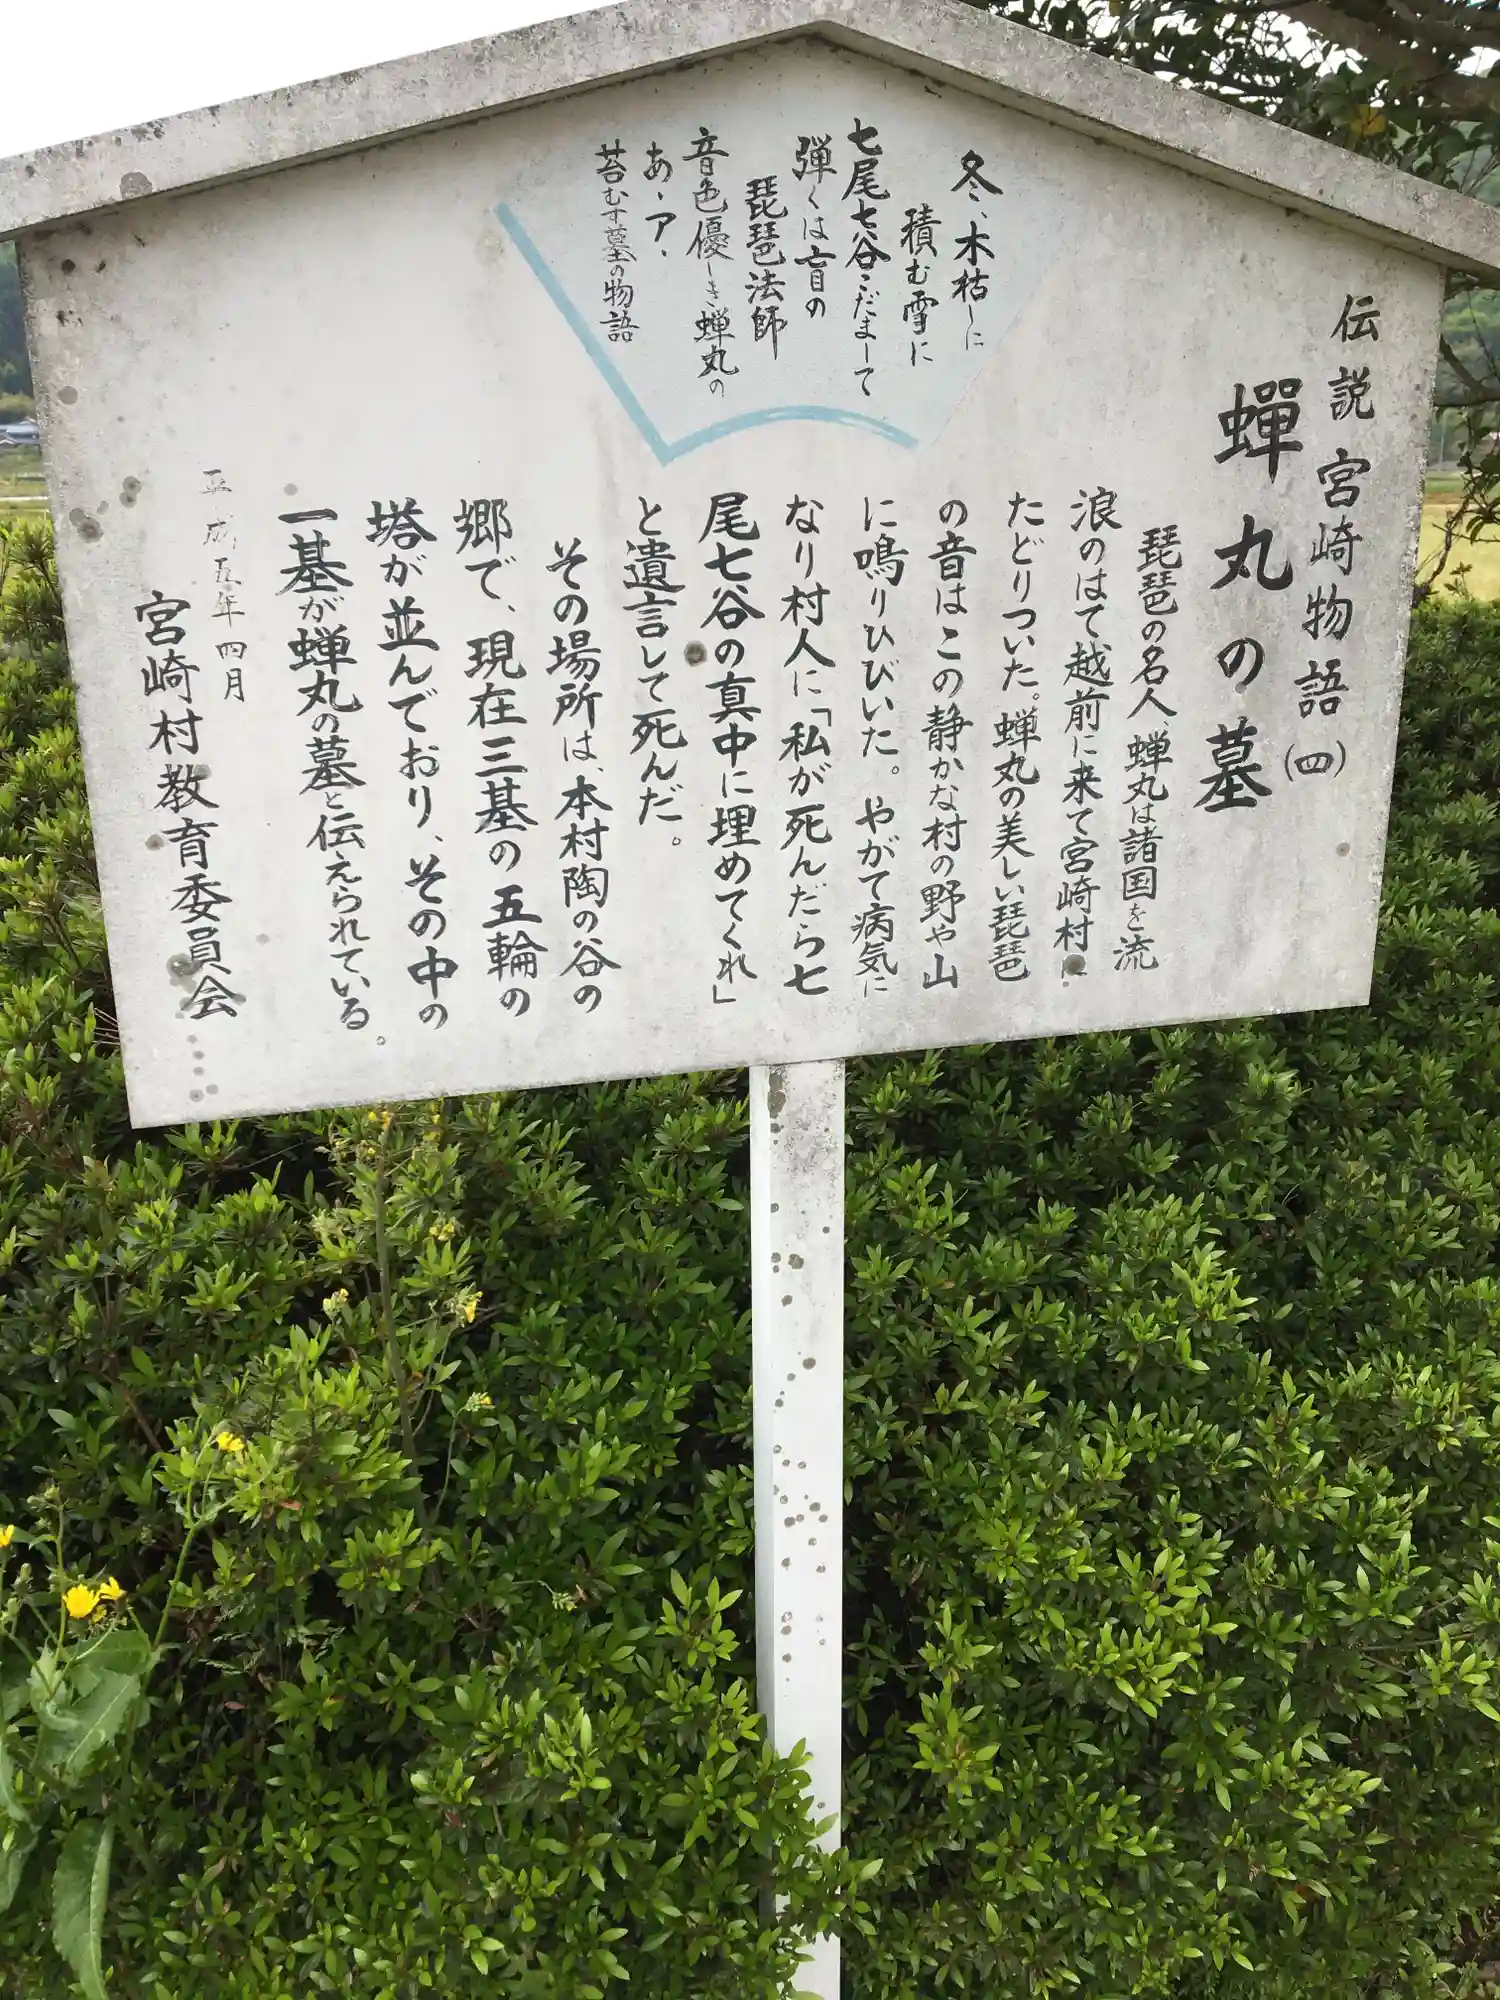 伝説宮崎物語(四)
蟬丸の墓
冬、木枯しに
積む雪に
七尾七谷こだまして
弾くは盲の
琵琶法師
音色優しき蝉丸の
あゝア、
苔むす墓の物語
琵琶の名人、蝉丸は諸国を流
浪のはて越前に来て宮崎村に
たどりついた。蝉丸の美しい琵琶
の音はこの静かな村の野や山
に鳴りひびいた。やがて病気に
なり村人に「私が死んだら七
尾七谷の真中に埋めてくれ」
と遺言して死んだ。
その場所は、本村陶の谷の
郷で、現在三基の五輪の
塔が並んでおり、その中の
一基が蝉丸の墓と伝えられている。
平成五年四月
宮崎村教育委員会